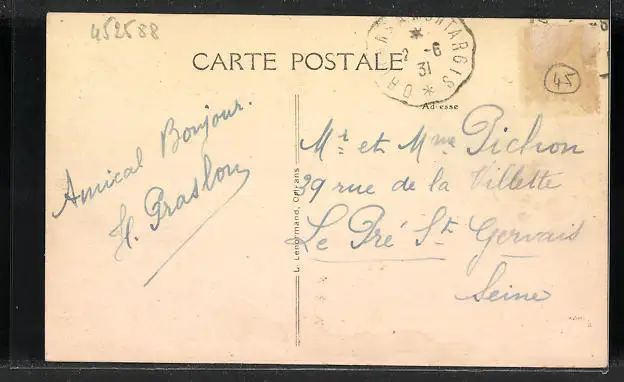 452588
CARTE POSTALE
ORLÉANS A MONTARGIS
2 -6
31
45
Adresse
Amical Bonjour.
H. Praslon
L. Lenormand, Orléans
Mr et Mme Pichon
29 rue de la Villette
Le Pré St Gervais
Seine